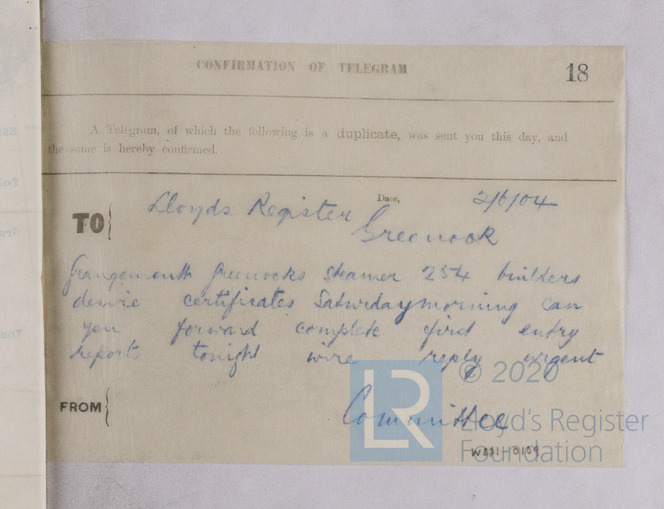 CONFIRMATION OF TELEGRAM
18
A Telegram, of which the following is a duplicate, was sent you this day, and
the same is hereby confirmed.
Date, 2/6/04
TO Lloyds Register
Greenock
Grangemouth Greenocks steamer 254 builders
desire certificates Saturday morning can
you forward complete first entry
reports tonight wire reply urgent
FROM Committee
LR © 2020
Lloyd's Register
Foundation